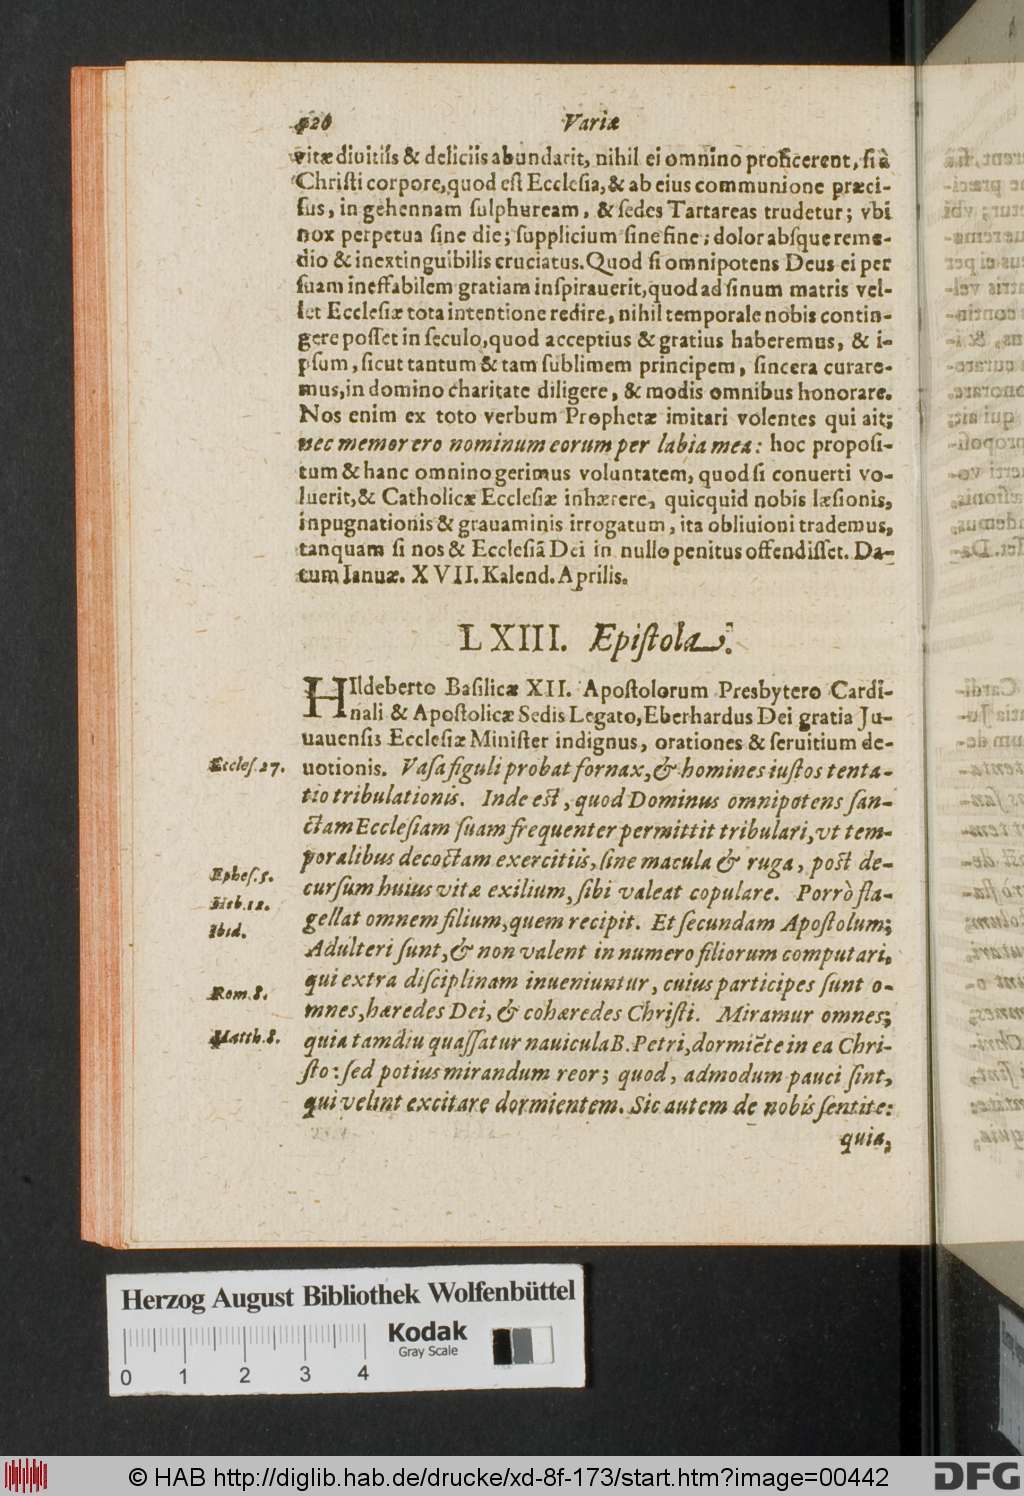 420 Variæ
vitæ diuitiis & deliciis abundarit, nihil ei omnino proficerent, si à
Christi corpore, quod est Ecclesia, & ab eius communione præci-
sus, in gehennam sulphuream, & sedes Tartareas trudetur; vbi
nox perpetua sine die; supplicium sine fine; dolor absque reme-
dio & inextinguibilis cruciatus. Quod si omnipotens Deus ei per
suam ineffabilem gratiam inspirauerit, quod ad sinum matris vel-
let Ecclesiæ tota intentione redire, nihil temporale nobis contin-
gere posset in seculo, quod acceptius & gratius haberemus, & i-
psum, sicut tantum & tam sublimem principem, sincera curare-
mus, in domino charitate diligere, & modis omnibus honorare.
Nos enim ex toto verbum Prophetæ imitari volentes qui ait;
nec memor ero nominum eorum per labia mea: hoc proposi-
tum & hanc omnino gerimus voluntatem, quod si conuerti vo-
luerit, & Catholicæ Ecclesiæ inhærere, quicquid nobis læsionis,
inpugnationis & grauaminis irrogatum, ita obliuioni trademus,
tanquam si nos & Ecclesiā Dei in nullo penitus offendisset. Da-
tum Ianuæ. XVII. Kalend. Aprilis.
LXIII. Epistola.
HIldeberto Basilicæ XII. Apostolorum Presbytero Cardi-
nali & Apostolicæ Sedis Legato, Eberhardus Dei gratia Ju-
uauensis Ecclesiæ Minister indignus, orationes & seruitium de-
Eccles. 27. uotionis. Vasa figuli probat fornax, & homines iustos tenta-
tio tribulationis. Inde est, quod Dominus omnipotens san-
ctam Ecclesiam suam frequenter permittit tribulari, vt tem-
poralibus decoctam exercitiis, sine macula & ruga, post de-
Ephes. 5. cursum huius vitæ exilium, sibi valeat copulare. Porrò fla-
Heb. 12. gellat omnem filium, quem recipit. Et secundam Apostolum;
Ibid. Adulteri sunt, & non valent in numero filiorum computari,
qui extra disciplinam inueniuntur, cuius participes sunt o-
Rom. 8. mnes, hæredes Dei, & cohæredes Christi. Miramur omnes;
Matth. 8. quia tamdiu quassatur nauicula B. Petri, dormiēte in ea Chri-
sto: sed potius mirandum reor; quod, admodum pauci sint,
qui velint excitare dormientem. Sic autem de nobis sentite:
quia,
Herzog August Bibliothek Wolfenbüttel
Kodak
Gray Scale
0 1 2 3 4
© HAB http://diglib.hab.de/drucke/xd-8f-173/start.htm?image=00442
DFG